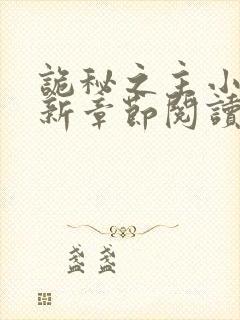 詭秘之主小
新章節閱讀
盞盞